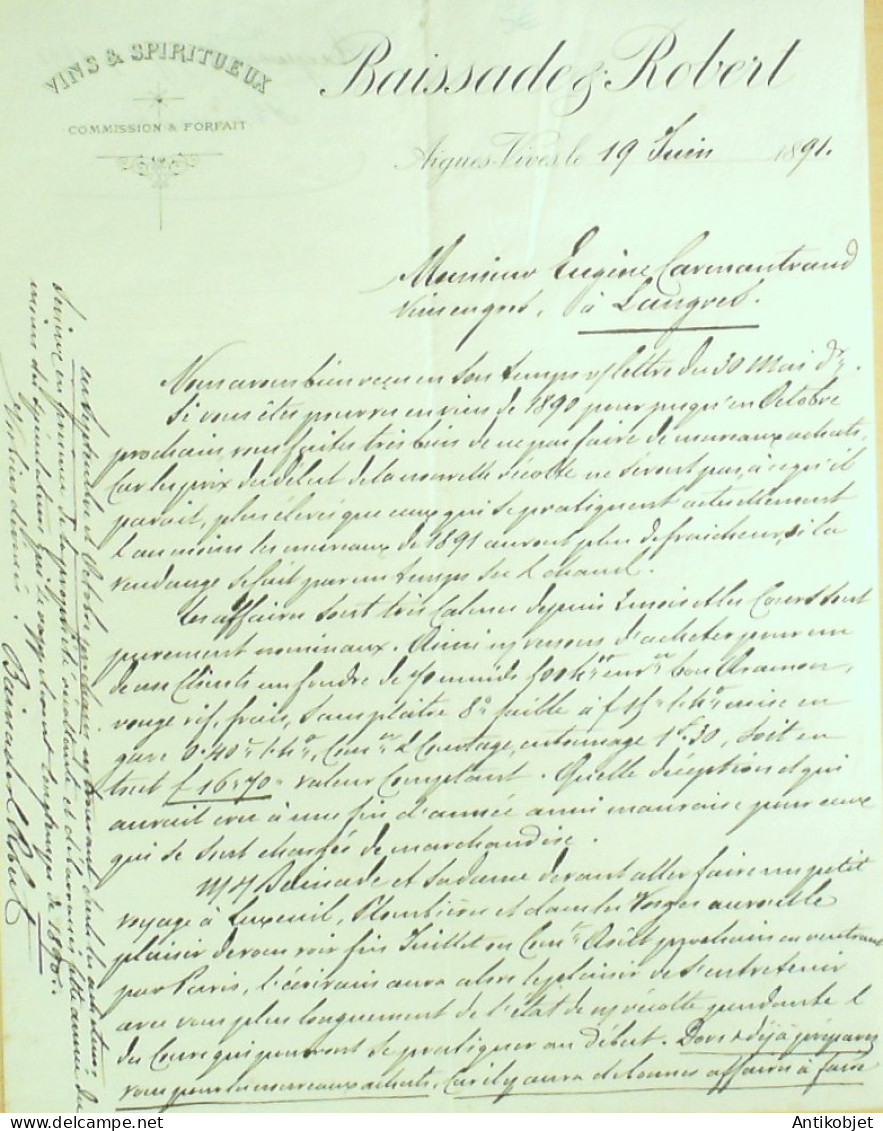 VINS & SPIRITUEUX
COMMISSION & FORFAIT
Baissade & Robert
Aigues-Vives, le 19 Juin 1891.
Monsieur Eugène Carmantrand
Vins en gros, à Langres.
Nous avons bien reçu en son temps v/ lettre du 30 Mai dr.
Si vous êtes pourvu en vins de 1890 pour jusqu'en Octobre
prochain vous faites très bien de ne pas faire de nouveaux achats,
Car les prix du début de la nouvelle récolte ne seront pas, à ce qu'il
parait, plus élevés que ceux qui se pratiquent actuellement
& au moins les nouveaux de 1891 auront plus de fraicheur, si la
vendange se fait par un temps sec & chaud.
Les affaires sont très calmes depuis 2 mois et les Cours sont
purement nominaux. Ainsi n/ venons d'acheter pour un
de nos Clients un foudre de 70 muids bon Aramon,
rouge vif, frais, sans plâtre 8° faible à f 15 mise en
gare 0.40, & Courtage, entonnage 1.30, soit en
tout f 16.70 valeur Comptant. Quelle déception et qui
aurait cru à une fin d'année aussi mauvaise pour ceux
qui se sont chargés de marchandise.
et sa dame devant aller faire un petit
voyage à Luxeuil, Plombières et dans les Vosges aura le
plaisir de vous voir fin Juillet ou Août prochain en rentrant
par Paris, l'écrivain aura alors le plaisir de s'entretenir
avec vous plus longuement de l'état de n/ récolte pendante &
des Cours qui pourront se pratiquer au début. Dors & déjà préparez
vous pour les nouveaux achats, Car il y aura de bonnes affaires à faire
en Septembre et Octobre prochains
suivre en primeur de la propriété récoltante
qui se rappelleront longtemps de 1890.
Vos bien dévoués
Baissade & Robert
Antikobjet